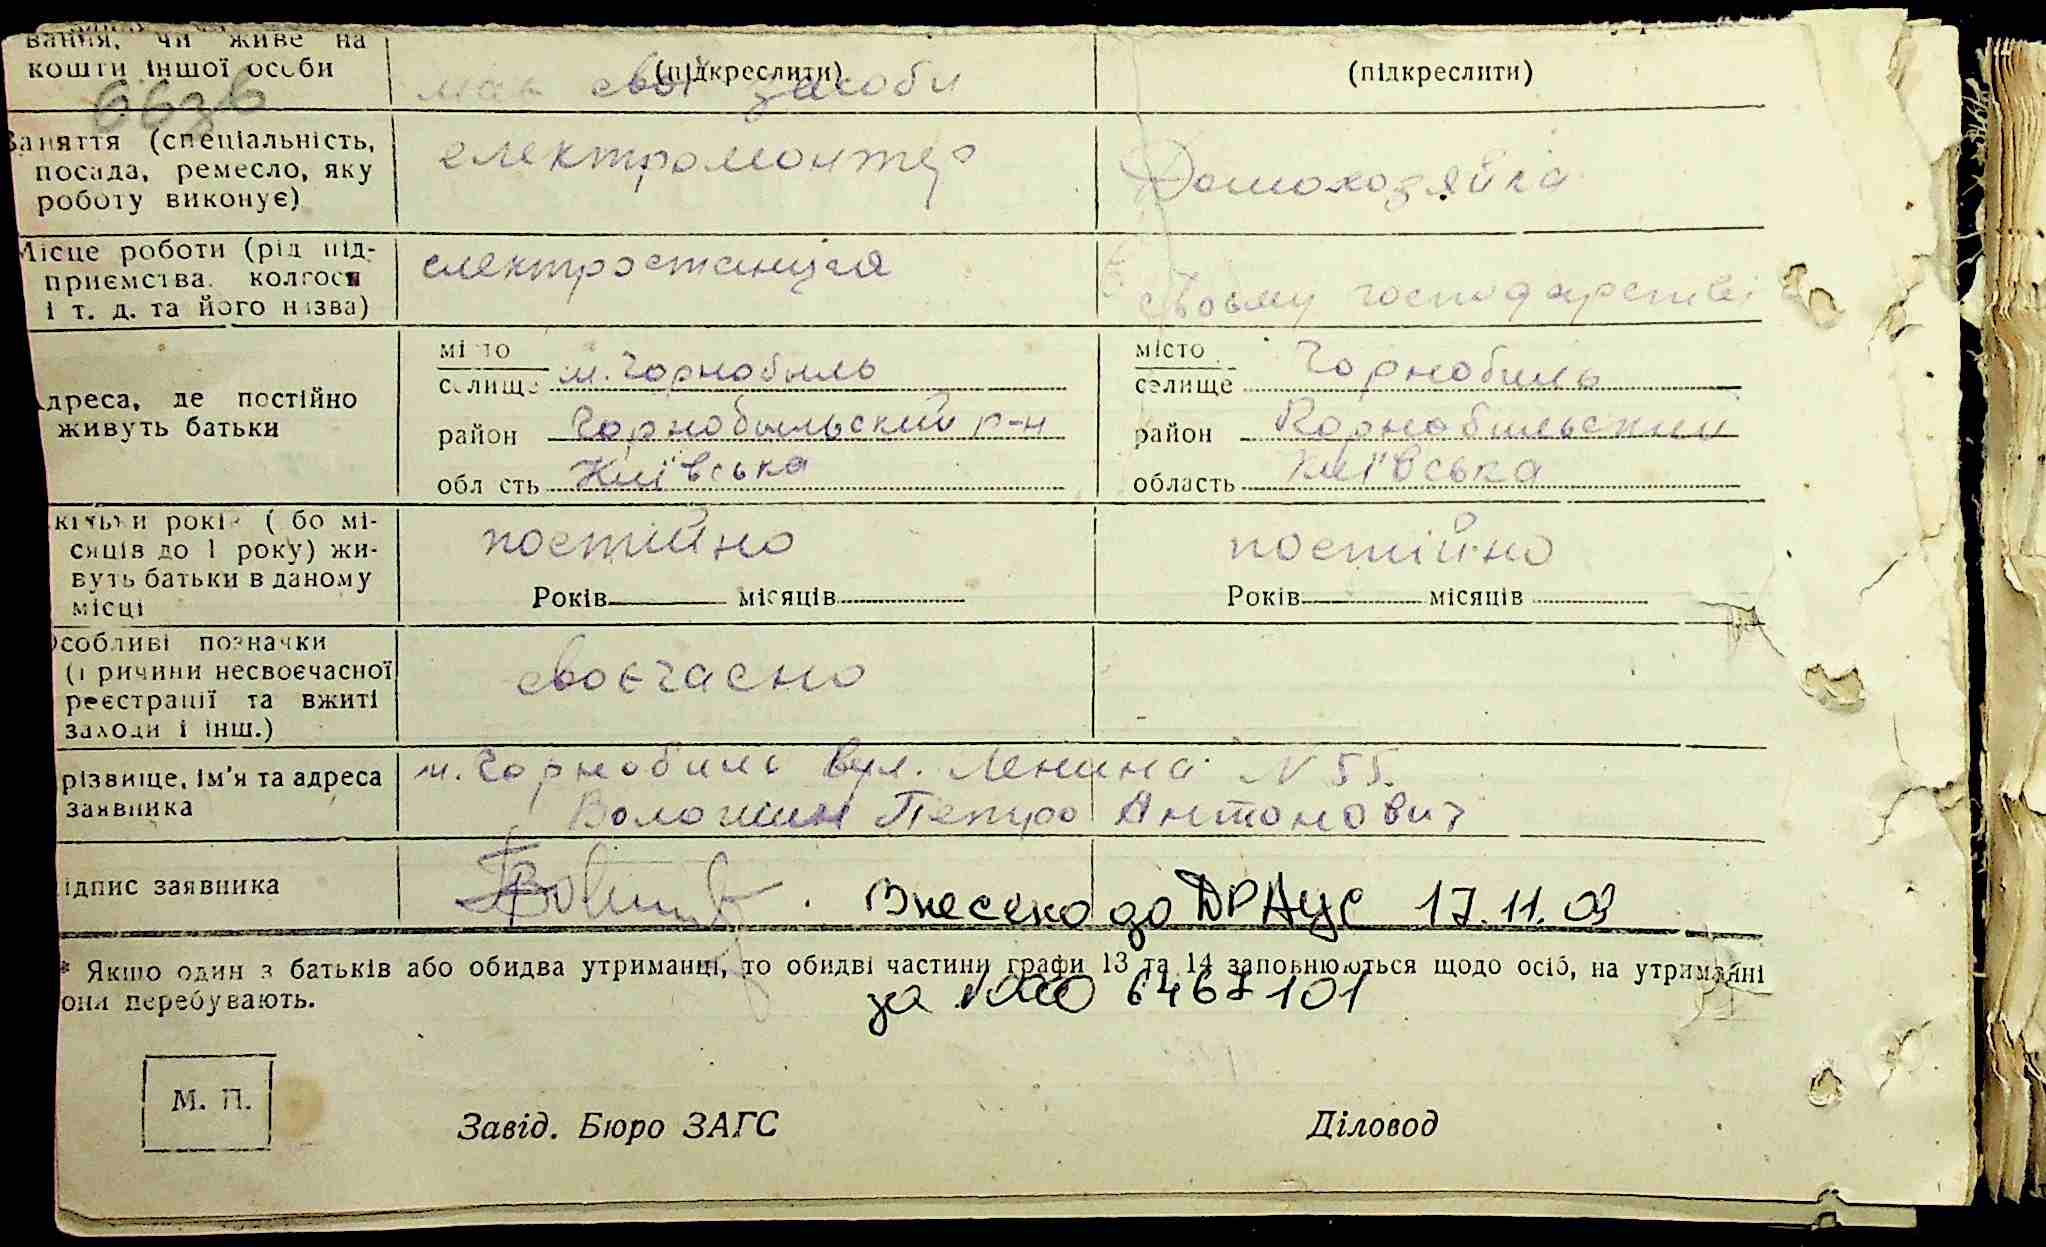 вання, чи живе на
кошти іншої особи
(підкреслити)
(підкреслити)
має свої засоби
Заняття (спеціальність,
посада, ремесло, яку
роботу виконує)
електромонтер
Домохозяйка
Місце роботи (рід під-
приємства, колгосп
і т. д. та його назва)
електростанція
своєму господарстві
Адреса, де постійно
живуть батьки
місто
селище м. Чорнобиль
район Чорнобыльский р-н
область Київська
місто
селище Чорнобиль
район Чорнобильский
область Київська
скільки років (або мі-
сяців до 1 року) жи-
вуть батьки в даному
місці
постійно
Років місяців
постійно
Років місяців
Особливі позначки
(причини несвоєчасної
реєстрації та вжиті
заходи і інш.)
своєчасно
Прізвище, ім'я та адреса
заявника
м. Чорнобиль вул. Леніна N 55.
Волошин Петро Антонович
Підпис заявника
Внесено до ДРАЦС 17.11.09
* Якшо один з батьків або обидва утриманці, то обидві частини графи 13 та 14 заповнюються щодо осіб, на утриманні
вони перебувають.
за 6467101
М. П.
Завід. Бюро ЗАГС
Діловод